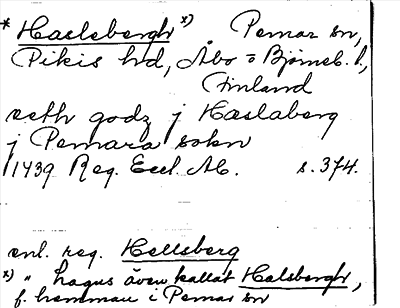 * Haelsbergh x) Pemar sn,
Pikis hd, Åbo o Björneb. l,
Finland
eeth godz j Hæslaberg
j Pemara sokn
1439 Reg. Eccl. Ab. s. 374.
enl. reg. Hellsberg
x) " hagus även kallat Halsbergh,
f. hemman i Pemar sn